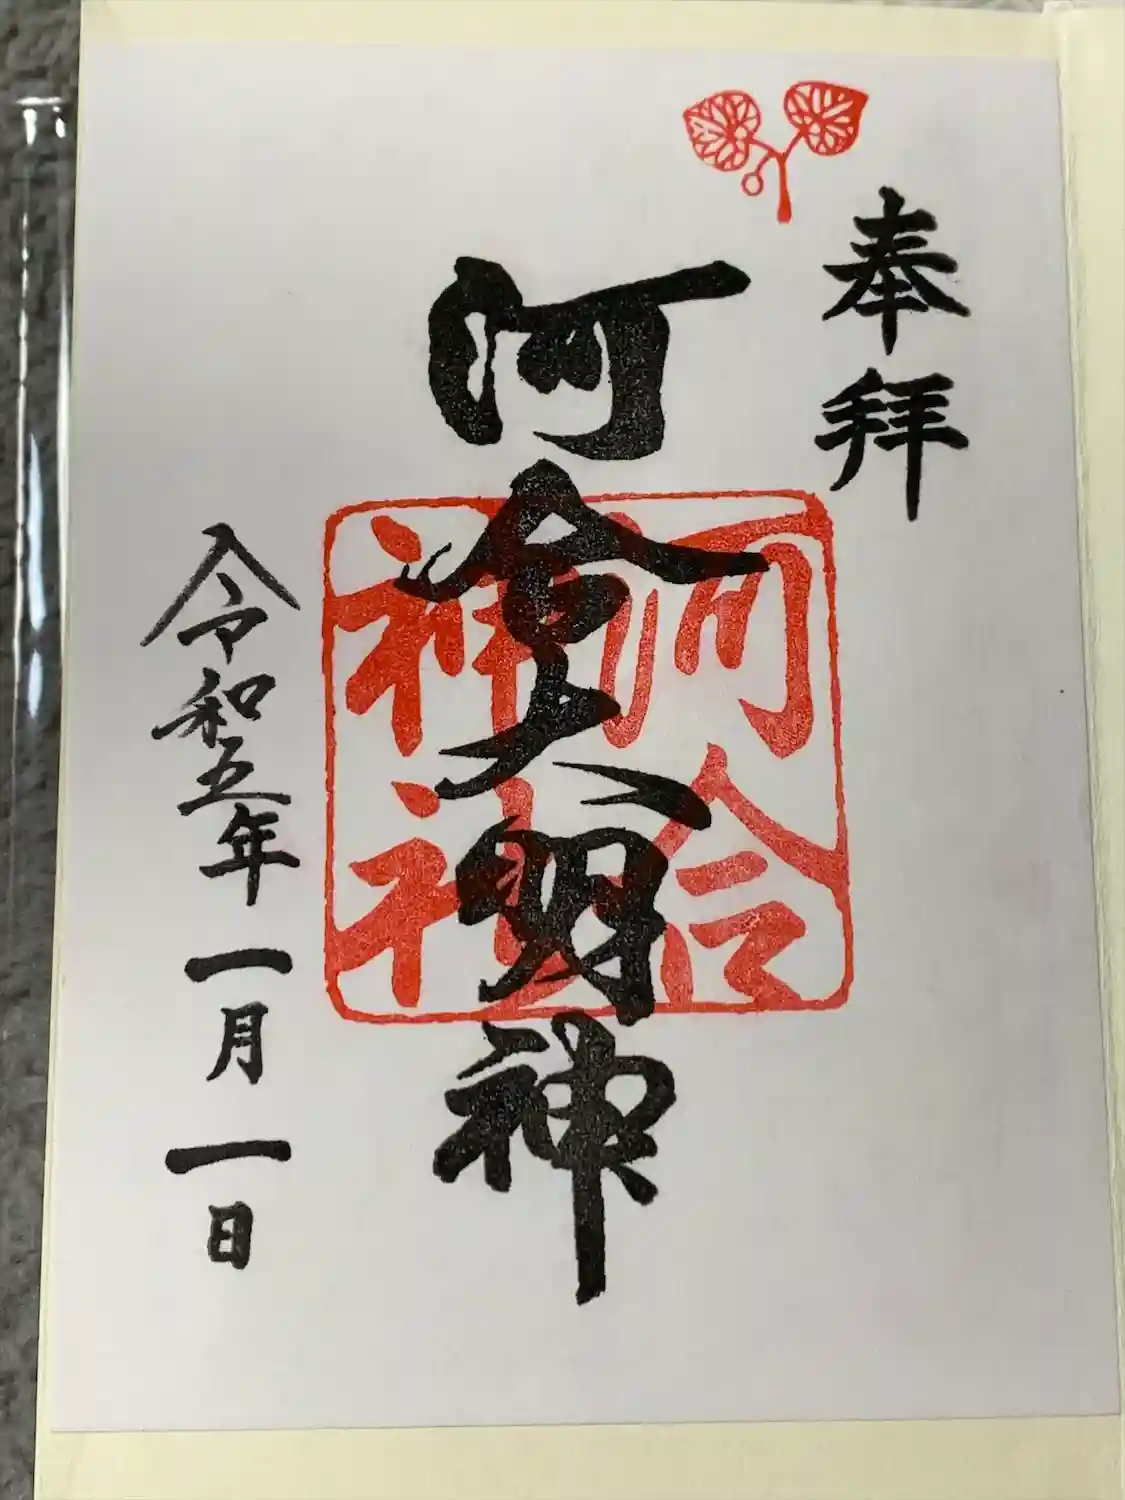 奉拝
河合大明神
河合神社
令和五年一月一日